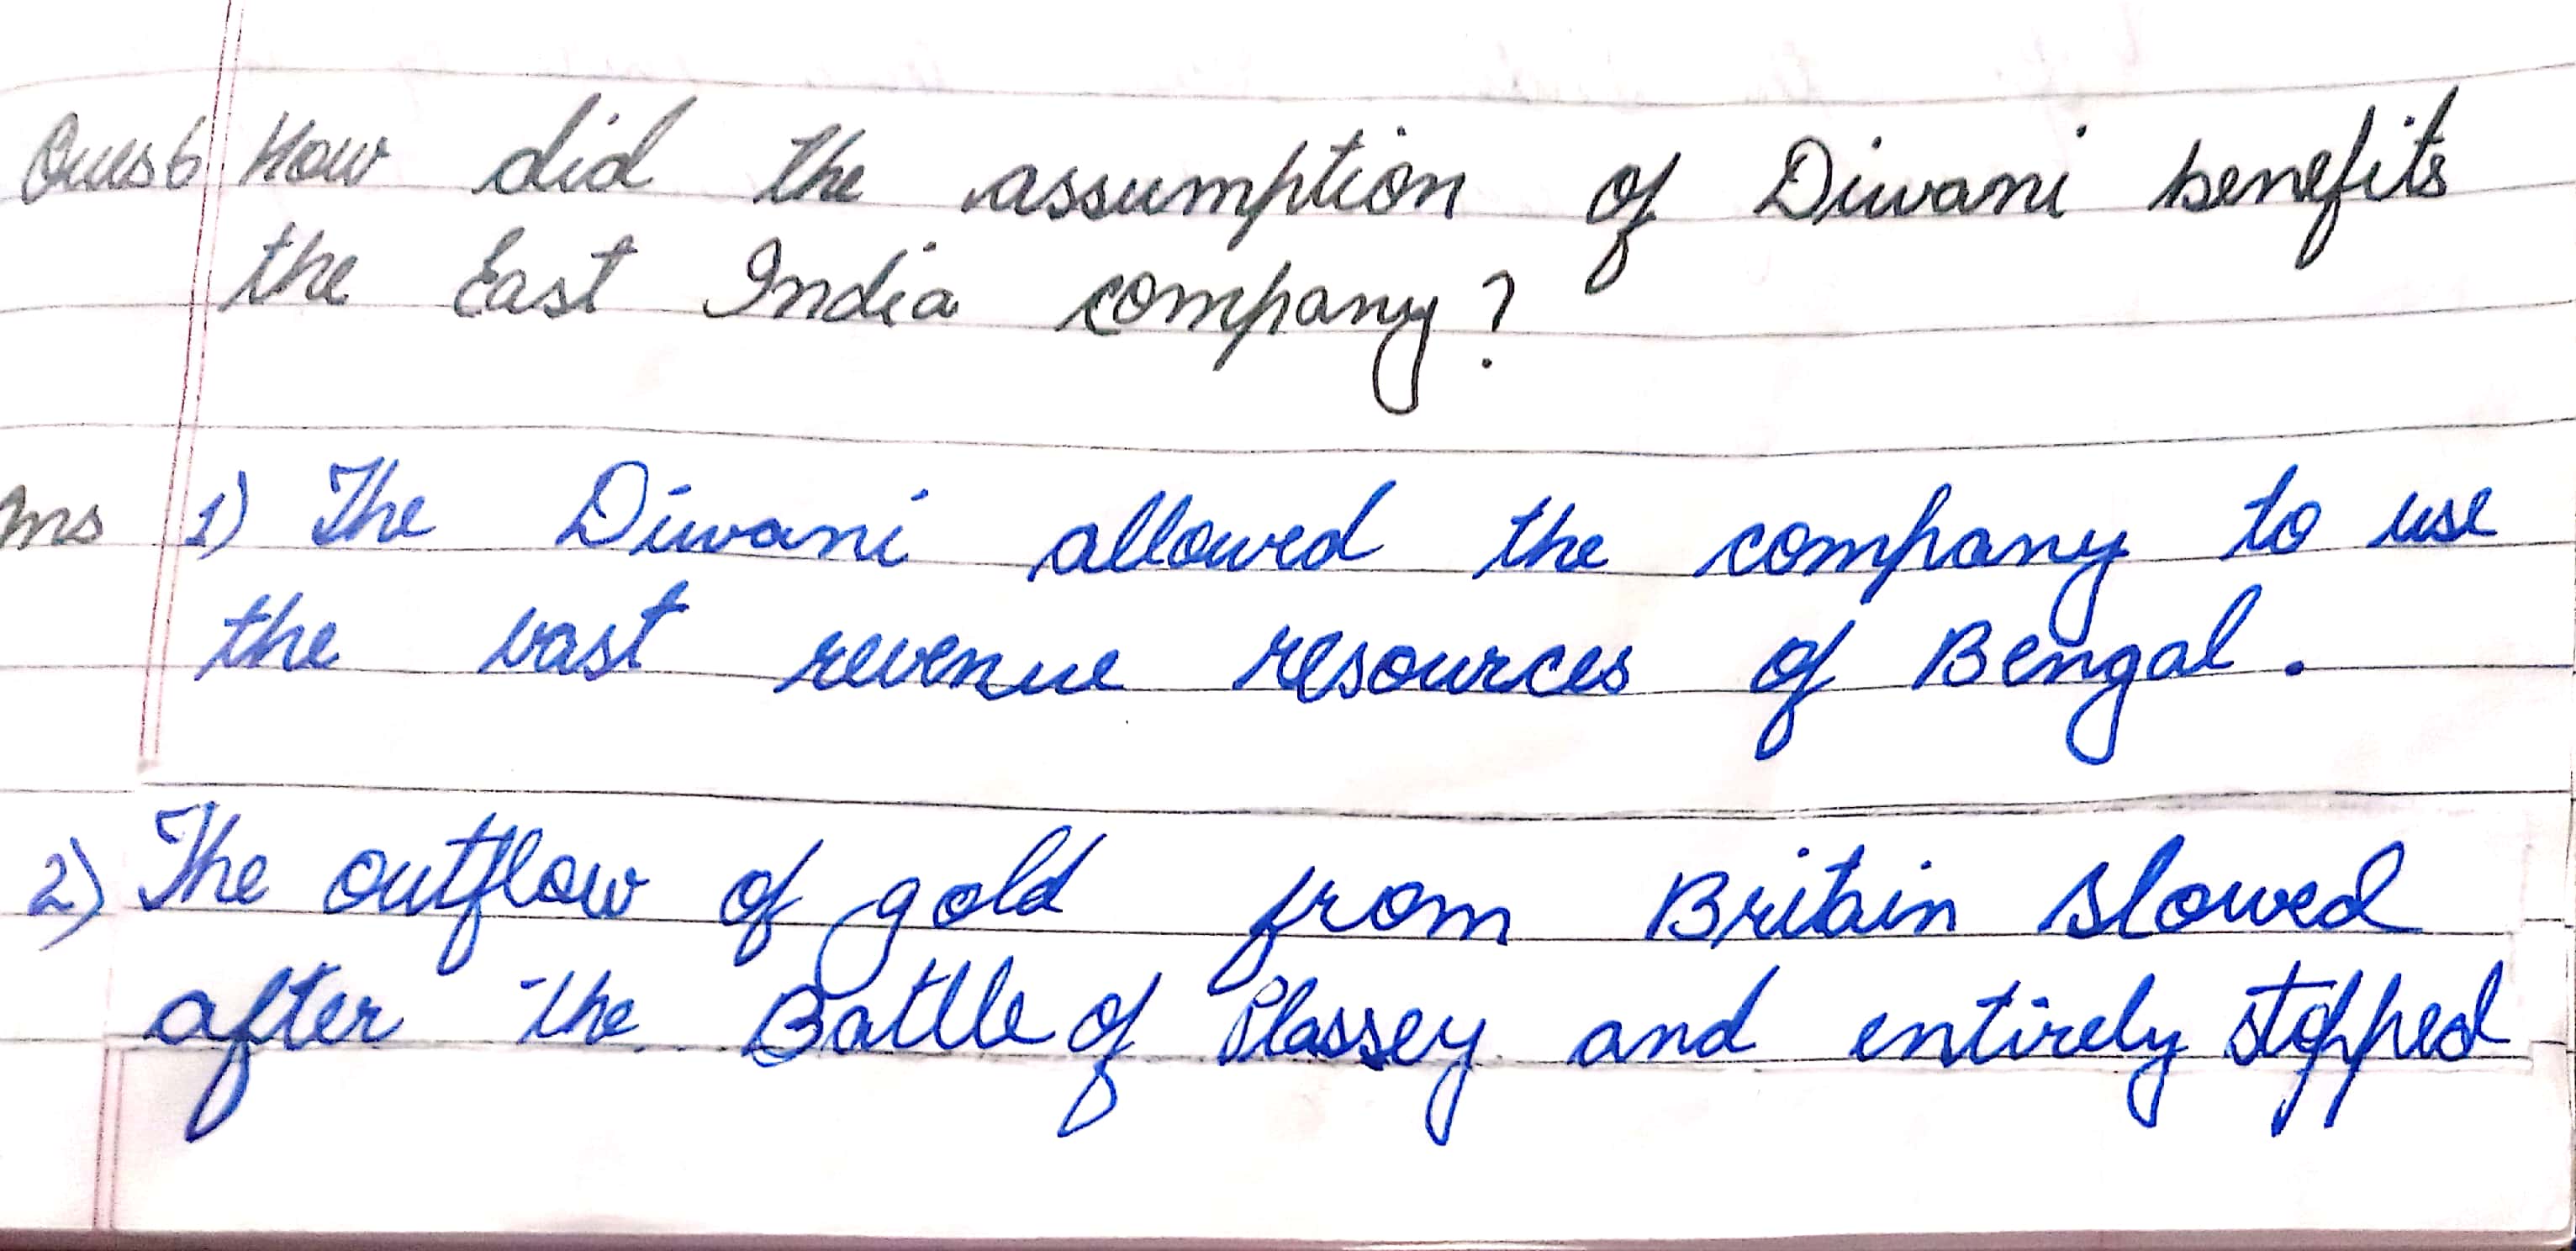 Ques6 How did the assumption of Diwani benefits
the East India company?
Ans 1) The Diwani allowed the company to use
the vast revenue resources of Bengal.
2) The outflow of gold from Britain slowed
after the Battle of Plassey and entirely stopped